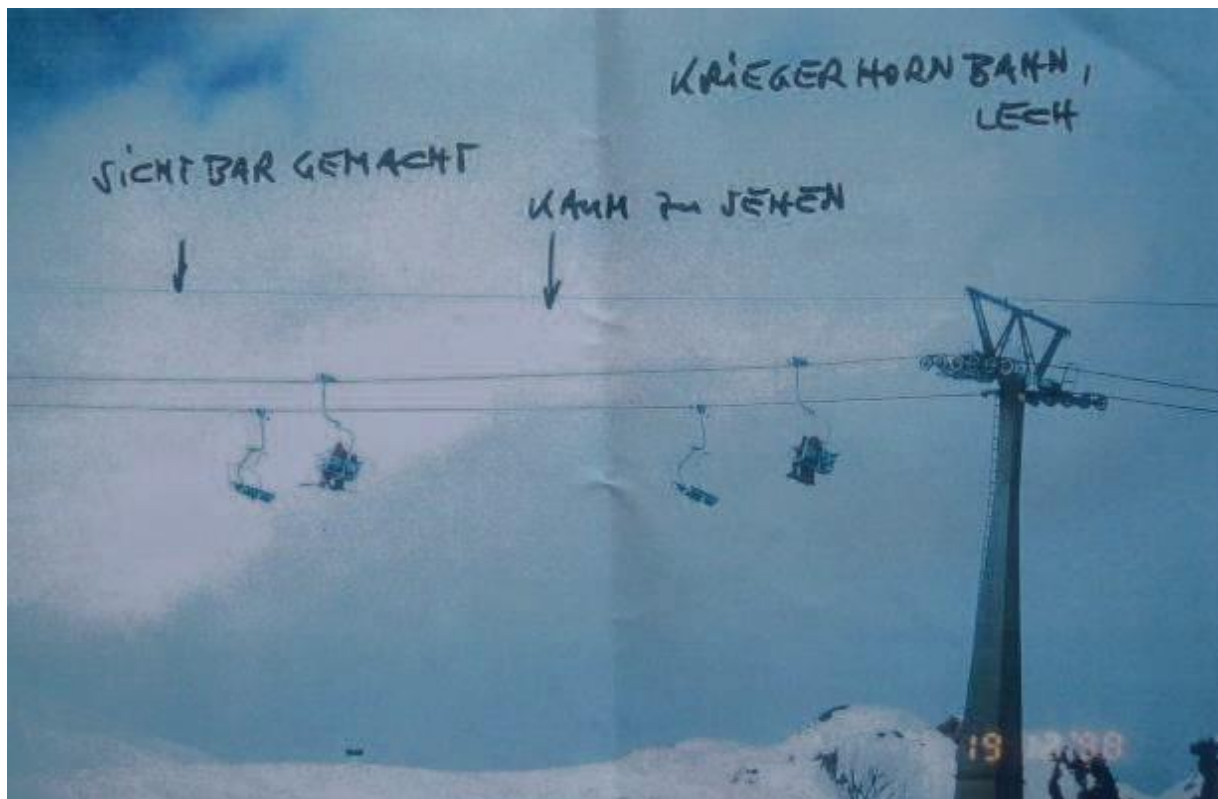 KRIEGERHORNBAHN,
LECH
SICHTBAR GEMACHT
KAUM zu SEHEN
19